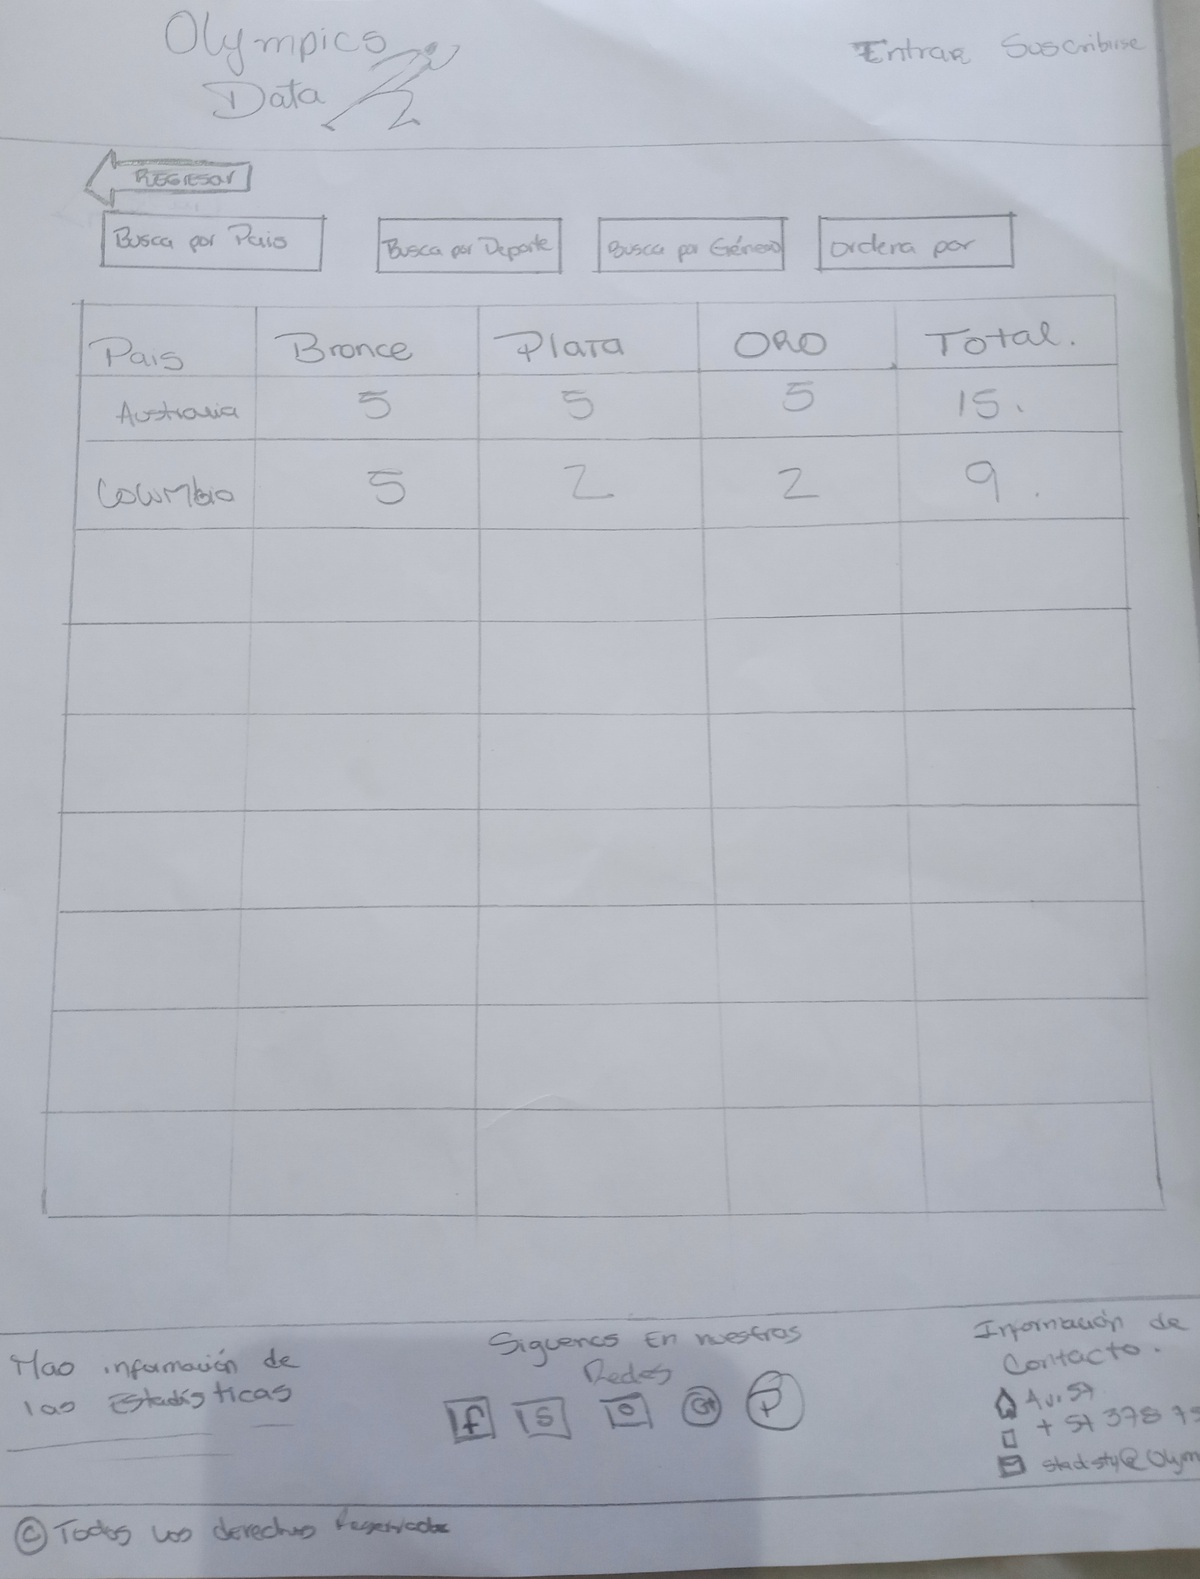 Olympics
Data
Entrar Suscribirse
REGRESAr
Busca por Pais
Busca por Deporte
Busca por Género
Ordena por
Pais Bronce Plata ORO Total.
Australia 5 5 5 15.
Columbia 5 2 2 9.
Mas información de
las Estadísticas
Siguenos En nuestros
Redes
f S O G+ P
Información de
Contacto.
Av. 57
+ 57 378 79
stadisty@Olym
© Todos los derechos Reservados